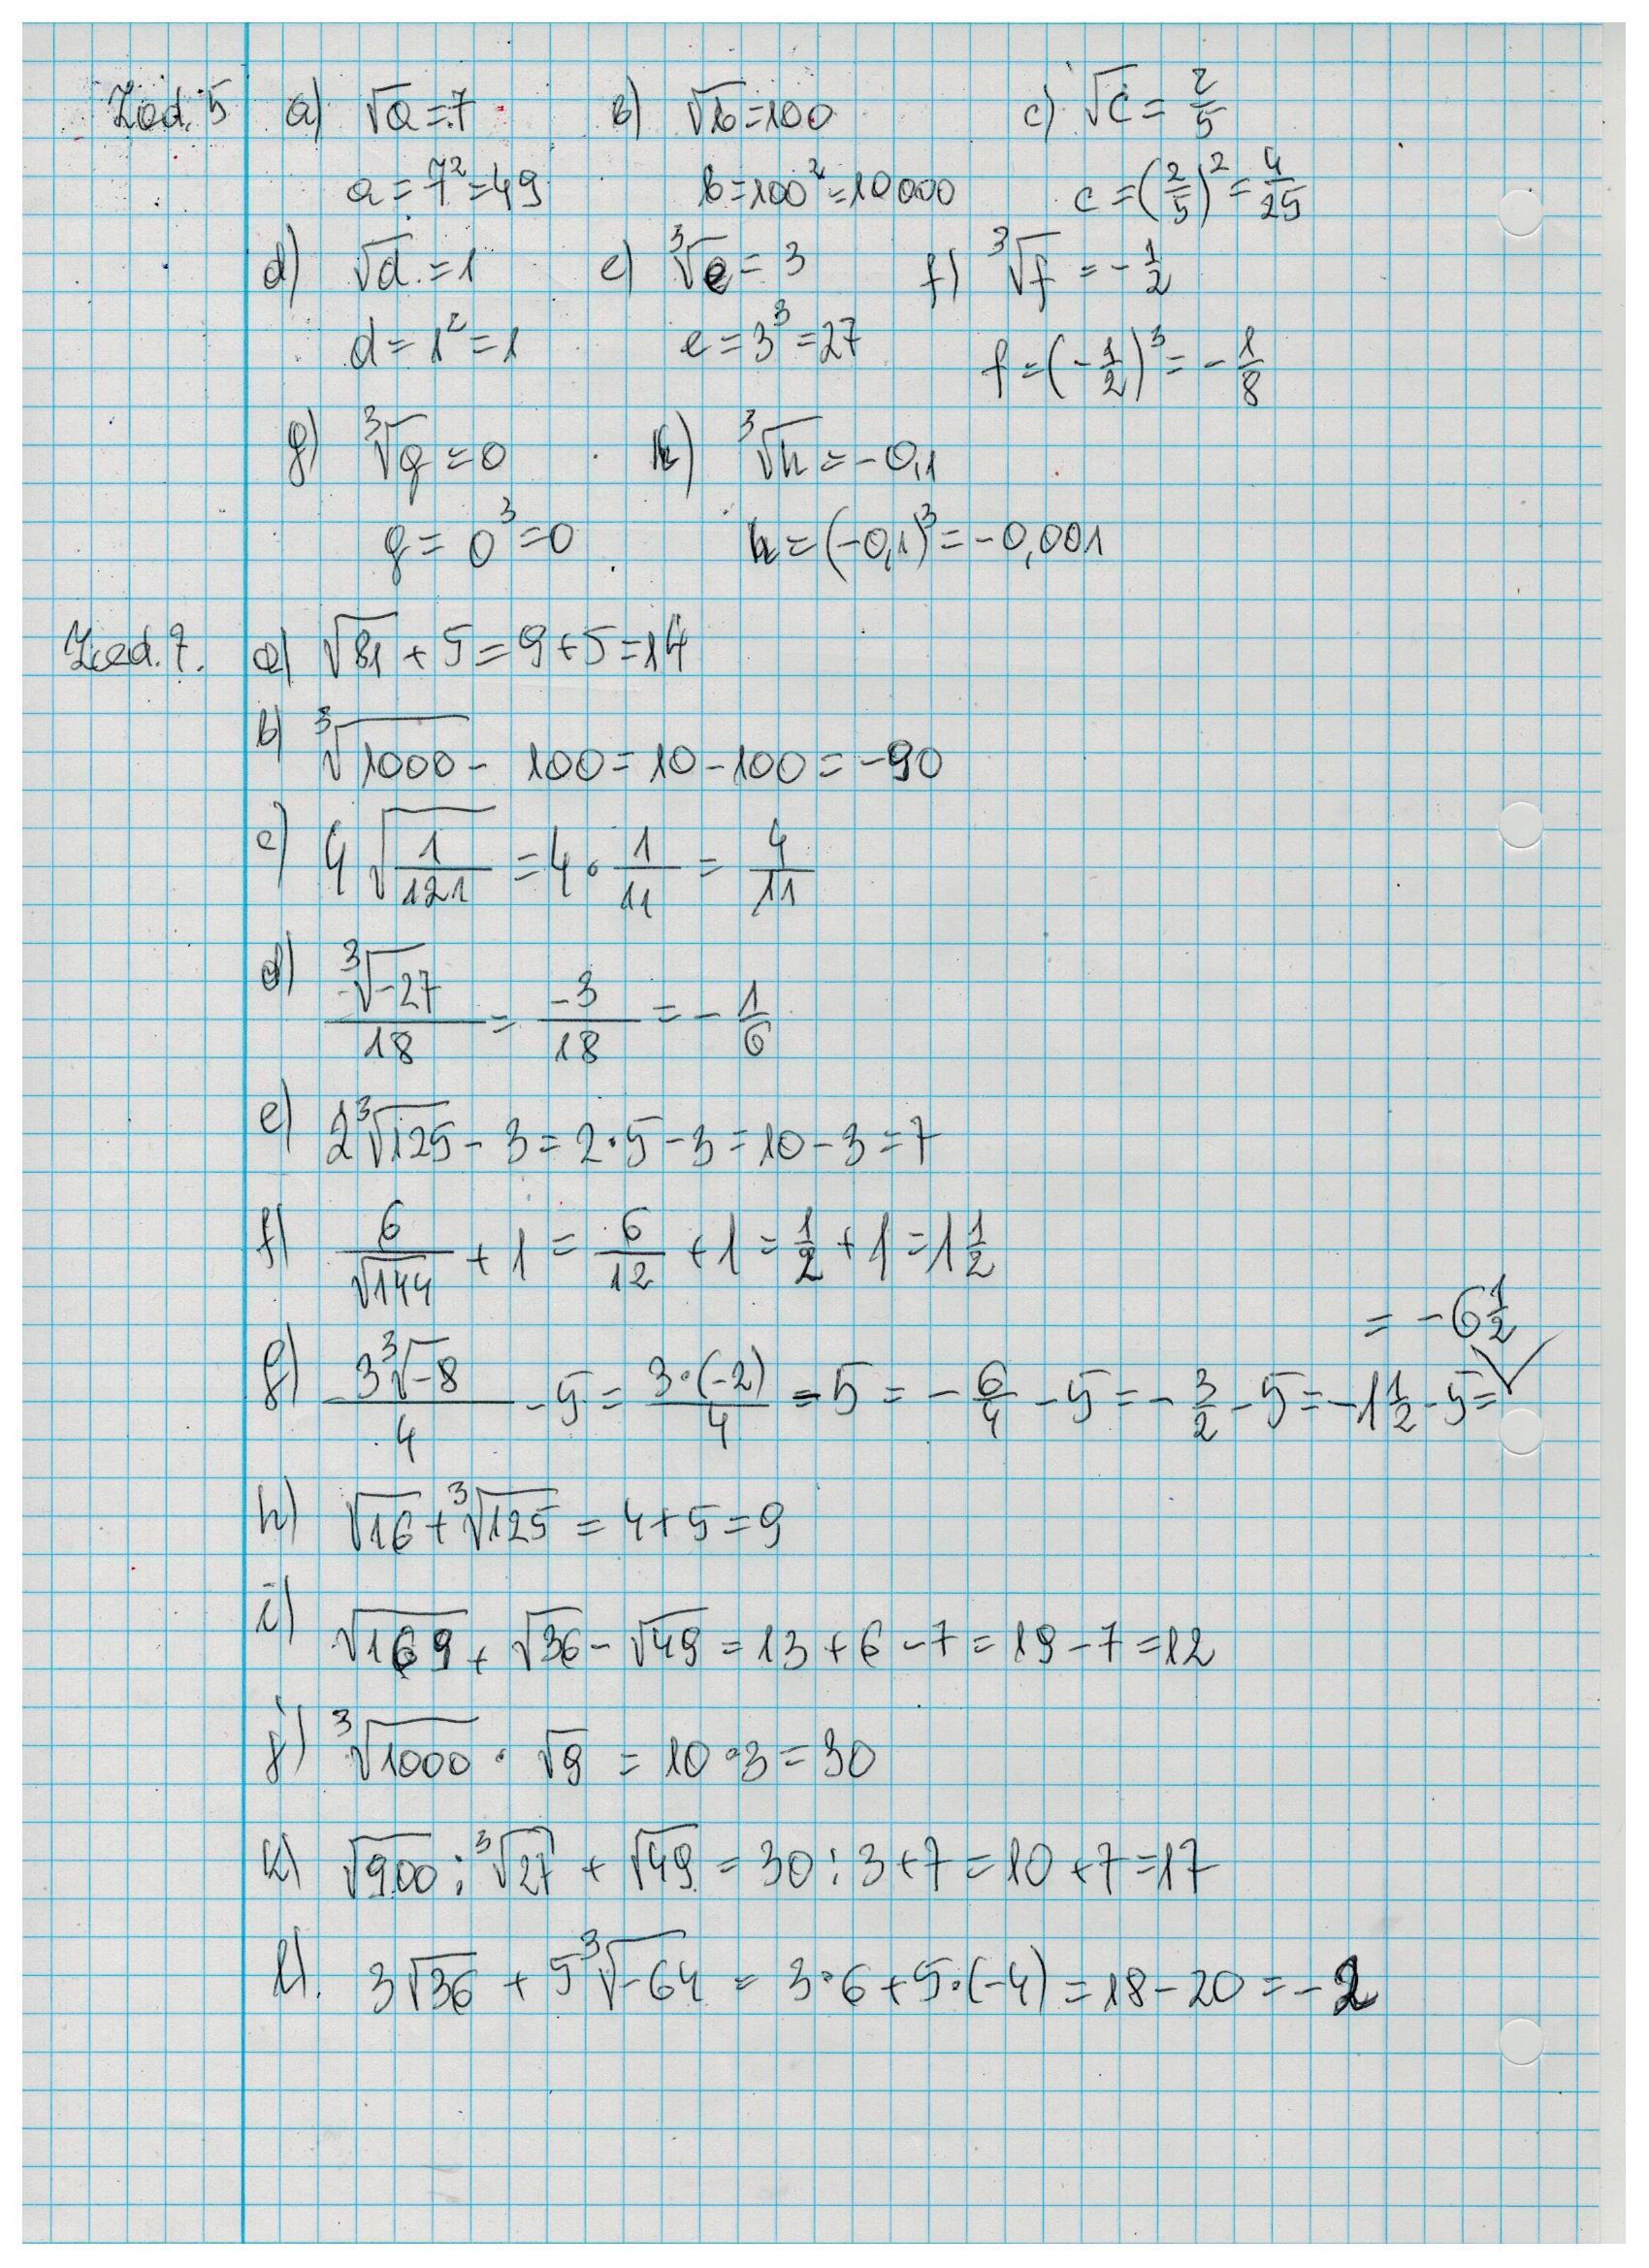 Zad. 5 a) √a = 7 b) √b = 100 c) √c = 2/5
a = 7² = 49 b = 100² = 10000 c = (2/5)² = 4/25
d) √d = 1 e) ³√e = 3 f) ³√f = -1/2
d = 1² = 1 e = 3³ = 27 f = (-1/2)³ = -1/8
g) ³√g = 0 h) ³√h = -0,1
g = 0³ = 0 h = (-0,1)³ = -0,001
Zad. 7. a) √81 + 5 = 9 + 5 = 14
b) ³√1000 - 100 = 10 - 100 = -90
c) 4√(1/121) = 4 · 1/11 = 4/11
d) ³√-27/18 = -3/18 = -1/6
e) 2³√125 - 3 = 2·5 - 3 = 10 - 3 = 7
f) 6/√144 + 1 = 6/12 + 1 = 1/2 + 1 = 1 1/2
g) 3³√-8/4 - 5 = 3·(-2)/4 - 5 = -6/4 - 5 = -3/2 - 5 = -1 1/2 - 5 =
= -6 1/2
h) √16 + ³√125 = 4 + 5 = 9
i) √169 + √36 - √49 = 13 + 6 - 7 = 19 - 7 = 12
j) ³√1000 · √9 = 10 · 3 = 30
k) √900 : ³√27 + √49 = 30 : 3 + 7 = 10 + 7 = 17
l). 3√36 + 5³√-64 = 3·6 + 5·(-4) = 18 - 20 = -2